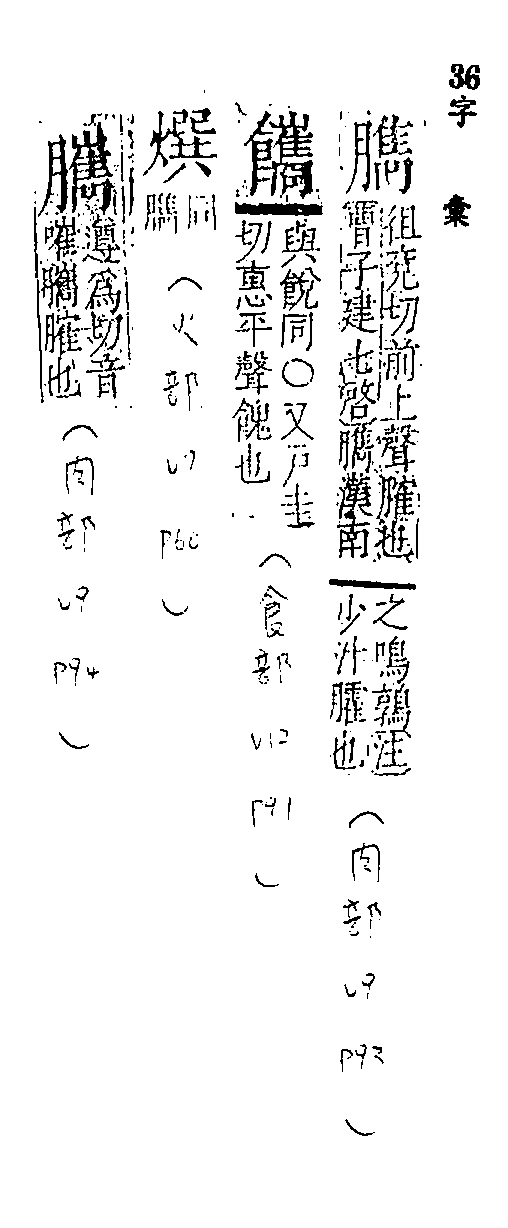 36字 彙
臇 徂兗切前上聲臛也
曹子建七啓臇漢南
之鳴鶉注
少汁臛也
（肉部 v9 p93）
與 同○又戶圭
切惠平聲餽也
（食部 v12 p91）
同
臇
（火部 v7 p60）
遵為切音
嗺 臛也
（肉部 v9 p94）